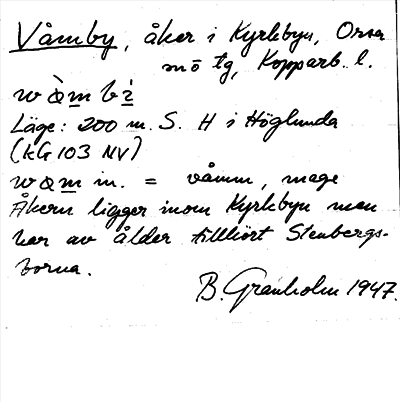 Våmby, åker i Kyrkbyn, Orsa
mö tg, Kopparb. l.
wå̀m bì
Läge: 200 m. S. H i Höglunda
(KG 103 NV)
wåm m. = våmm, mage
Åkern ligger inom Kyrkbyn men
har av ålder tillhört Stenbergs-
borna.
B. Granholm 1947.